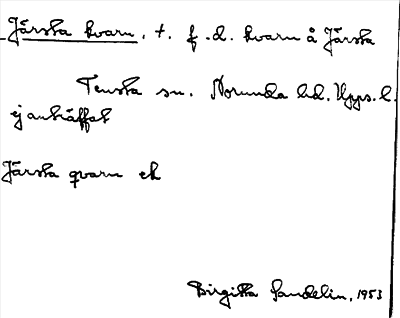 Järsta kvarn, t. f.d. kvarn å Järsta
Tensta sn. Norunda hd. Upps. l.
ej anträffat
Järsta qvarn ek
Birgitta Sandelin, 1953